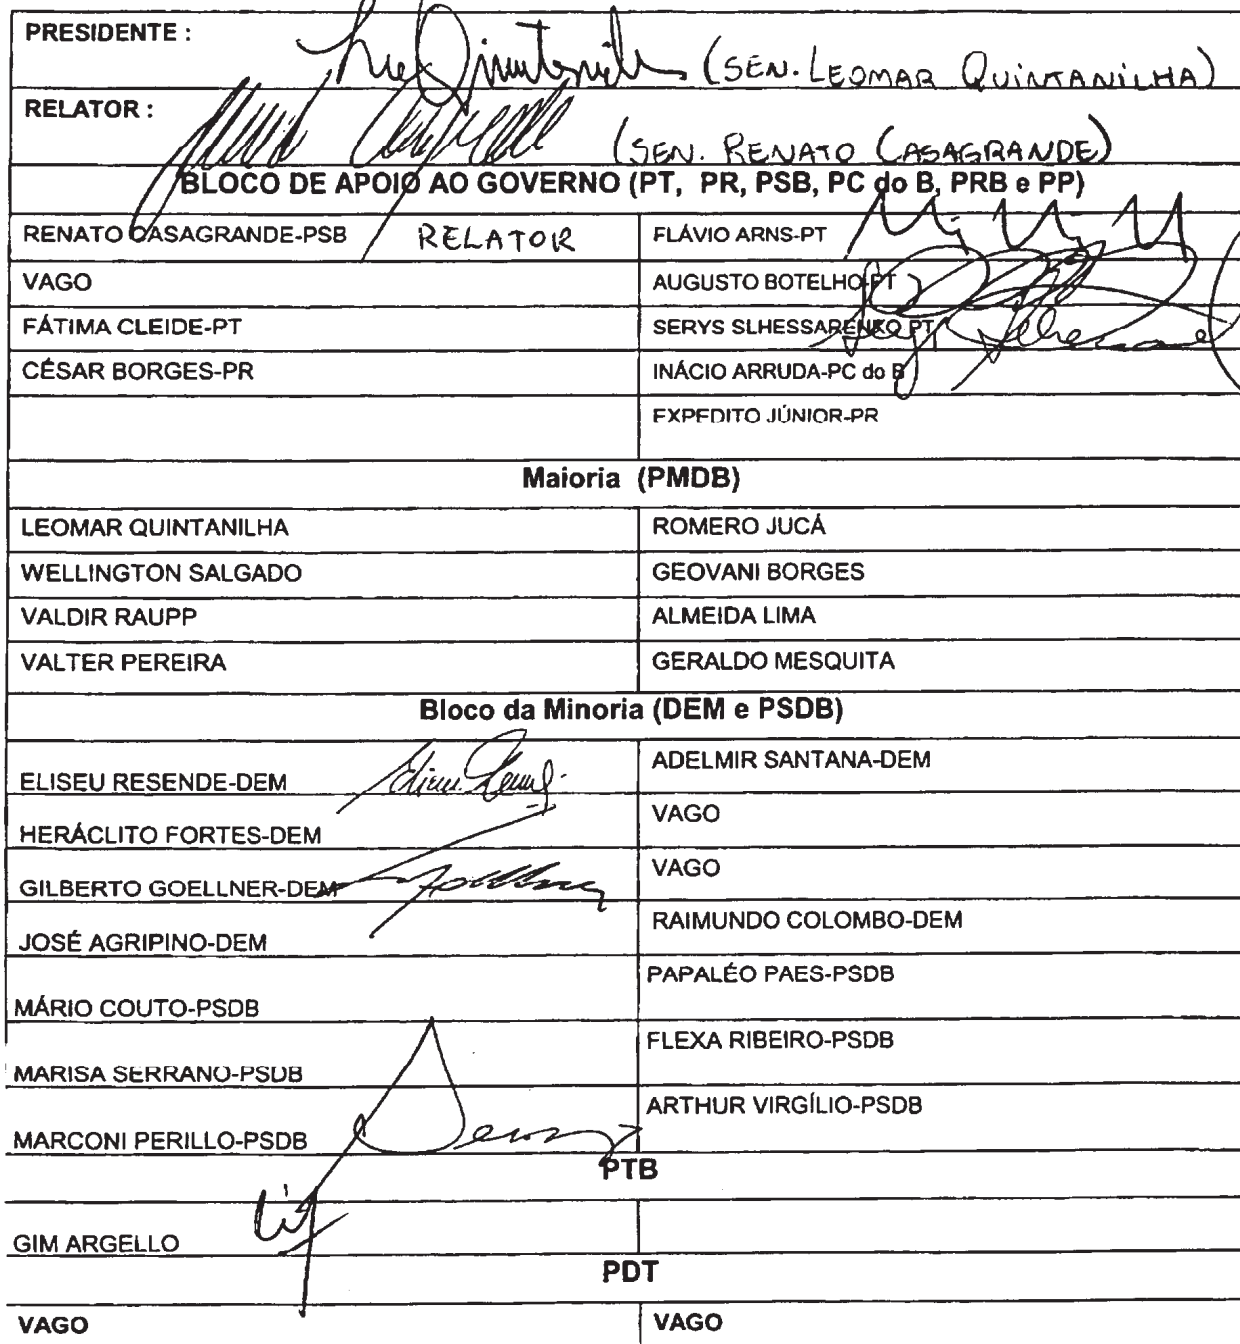 PRESIDENTE :
(SEN. LEOMAR QUINTANILHA)
RELATOR :
(SEN. RENATO CASAGRANDE)
BLOCO DE APOIO AO GOVERNO (PT, PR, PSB, PC do B, PRB e PP)
RENATO CASAGRANDE-PSB RELATOR FLÁVIO ARNS-PT
VAGO AUGUSTO BOTELHO-PT
FÁTIMA CLEIDE-PT SERYS SLHESSARENKO-PT
CÉSAR BORGES-PR INÁCIO ARRUDA-PC do B
EXPEDITO JÚNIOR-PR
Maioria (PMDB)
LEOMAR QUINTANILHA ROMERO JUCÁ
WELLINGTON SALGADO GEOVANI BORGES
VALDIR RAUPP ALMEIDA LIMA
VALTER PEREIRA GERALDO MESQUITA
Bloco da Minoria (DEM e PSDB)
ELISEU RESENDE-DEM ADELMIR SANTANA-DEM
HERÁCLITO FORTES-DEM VAGO
GILBERTO GOELLNER-DEM VAGO
JOSÉ AGRIPINO-DEM RAIMUNDO COLOMBO-DEM
MÁRIO COUTO-PSDB PAPALÉO PAES-PSDB
MARISA SERRANO-PSDB FLEXA RIBEIRO-PSDB
MARCONI PERILLO-PSDB ARTHUR VIRGÍLIO-PSDB
PTB
GIM ARGELLO
PDT
VAGO VAGO